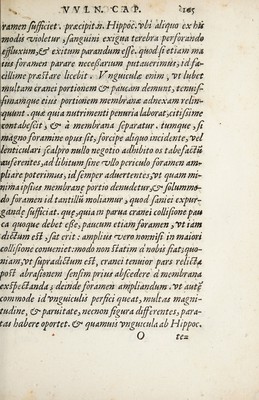 VVLN. CAP. 105
ramen sufficiet. præcipit n. Hippoc. vbi aliquo ex his
modis violetur, sanguini exigua terebra perforando
effluxum, & exitum parandum esse. quod si etiam ma
ius foramen parare necessarium putauerimus, id fa-
cillime præstare licebit. Vnguicula enim, vt lubet
multam cranei portionem & paucam demunt, tenuis-
simamque eius portionem membrana adnexam relin-
quunt. quæ quia nutrimenti penuria laborat, citissime
contabescit, & a membrana separatur. tumque, si
magno foramine opus sit, forcipe aliquo incidente, vel
lenticulari scalpro nullo negotio adhibito os tabefactū
auferentes, ad libitum sine vllo periculo foramen am-
pliare poterimus, id semper aduertentes, vt quam mi-
nima ipsius membranæ portio denudetur, & solummo-
do foramen id tantillū moliamur, quod saniei expur-
gandæ sufficiat. que, quia in parua cranei collisione pau
ca quoque debet esse, paucum etiam foramen, vt iam
dictum est, sat erit: amplius vero nonnisi in maiori
collisione conueniet: modo non statim a nobis fiat; quo-
niam, vt supradictum est, cranei tenuior pars relicta
post abrasionem sensim prius abscedere a membrana
exspectanda; deinde foramen ampliandum. vt autē
commode id vnguiculis perfici queat, multas magni-
tudine, & paruitate, necnon figura differentes, para-
tas habere oportet. & quamuis vnguicula ab Hippoc.
O te=